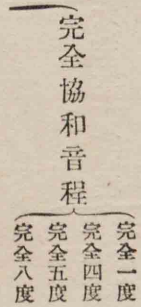 完全協和音程
完全一度
完全四度
完全五度
完全八度